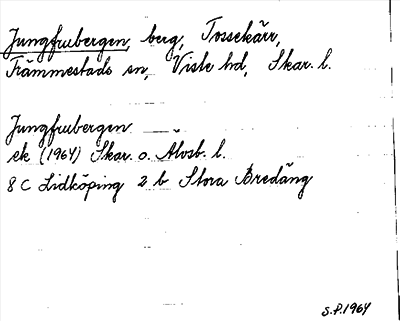 Jungfrubergen, berg, Tossekärr,
Främmestads sn, Viste hd, Skar. l.
Jungfrubergen
ek (1964) Skar. o. Älvsb. l.
8 C Lidköping 2 b Stora Bredäng
S.P. 1964